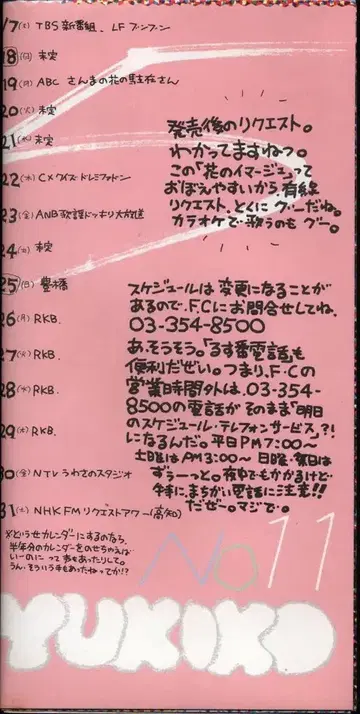 /7(土) TBS 新番組. LF ブンブン
18(日) 未定
19(月) ABC さんまの花の駐在さん
20(火) 未定
21(水) 未定
22(木) CXクイズ・ドレミファドン
23(金) ANB歌謡ドッキリ大放送
24(土) 未定
25(日) 豊橋
26(月) RKB.
27(火) RKB.
28(水) RKB.
29(木) RKB.
30(金) NTVうわさのスタジオ
31(土) NHKFMリクエストアワー(高知)
※どうせカレンダーにするのなら、
半年分のカレンダーをのせちゃえば
いーのにって声もあったりして。
うん、そういう手もあったねってか!?
発売後のリクエスト。
わかってますねっ。
この「花のイマージュ」って
おぼえやすいから、有線
リクエスト、とくにグーだね。
カラオケで歌うのもグー。
スケジュールは変更になることが
あるので、F.Cにお問合せしてね。
03-354-8500
あ、そうそう。「るす番電話」も
便利だぜい。つまり、F・Cの
営業時間外は、03-354-
8500の電話がそのまま"明日
のスケジュール・テレフォンサービス"?!
になるんだ。平日PM7:00〜
土曜はAM3:00〜 日曜・祭日は
ずぅーっと。夜中でもかかるけど、
くれぐれもまちがい電話に注意!!
だぜー。マジで。
No 11
YUKIKO